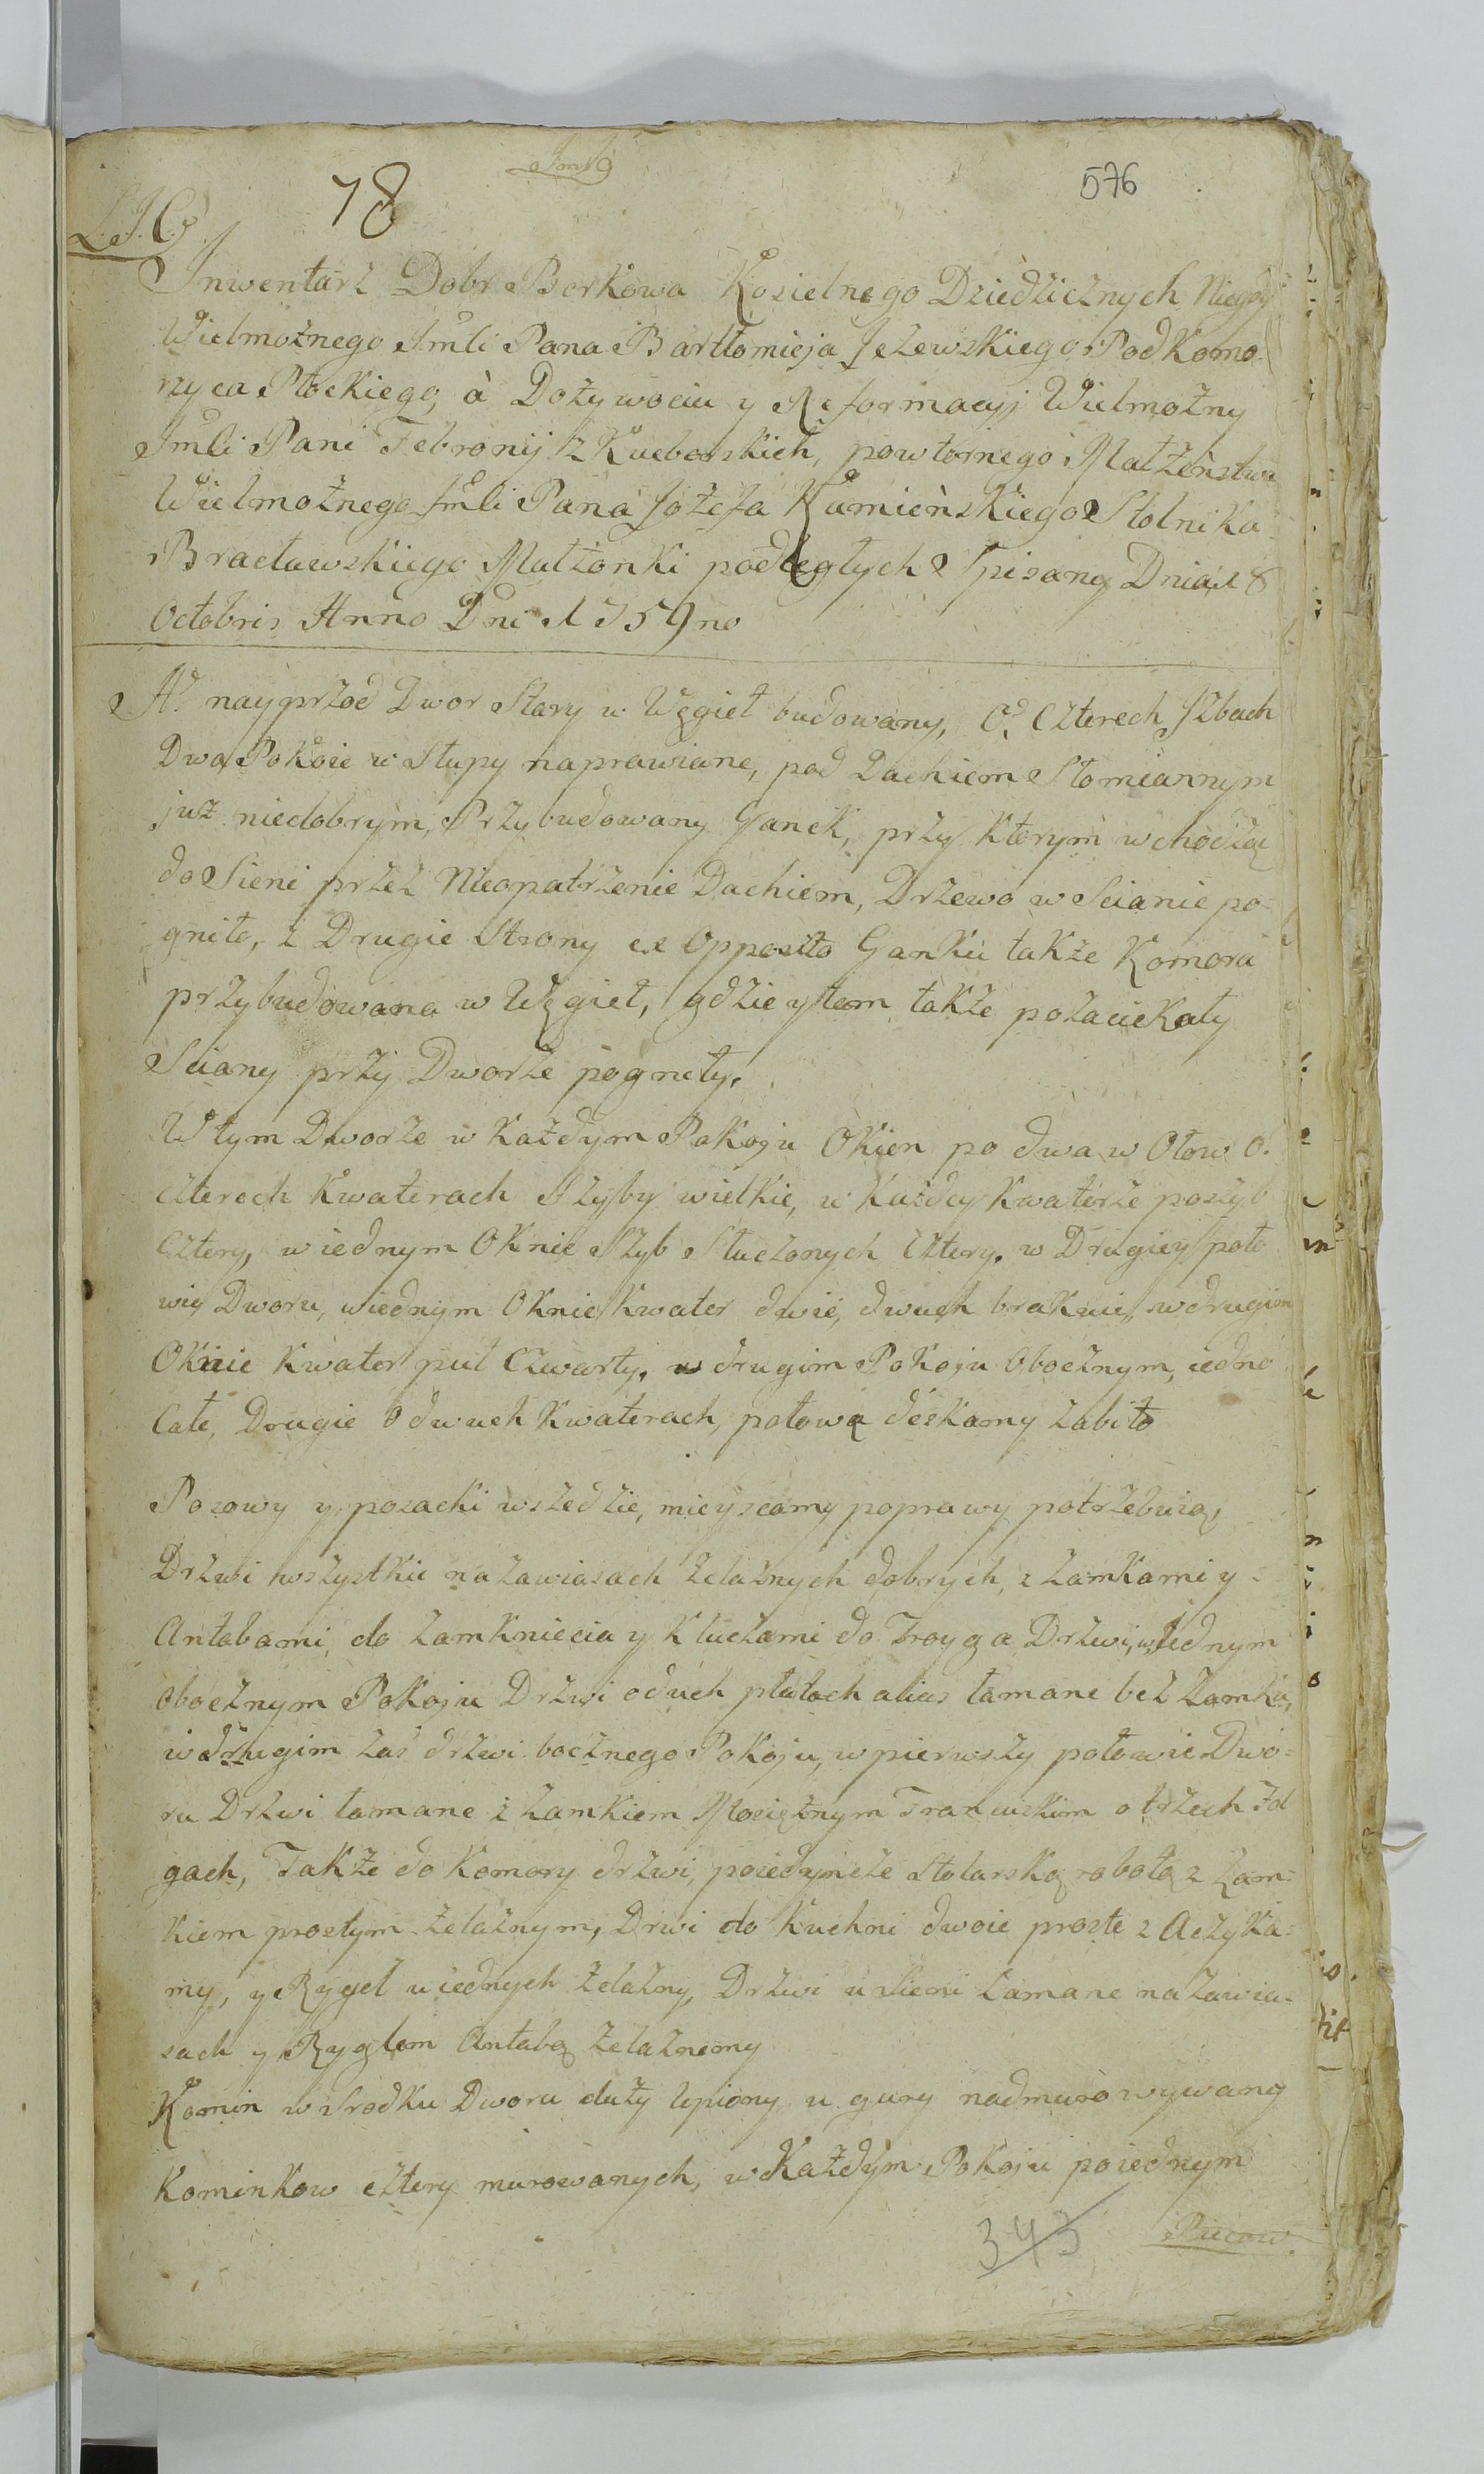 78
576
L.J.C.
Inwentarz Dobr Borkowa Kosielnego Dziedzicznych Niegdy
Wielmożnego Jmći Pana Bartłomieja Jeżewskiego Podkomo-
rzyca Płockiego, à Dożywociu y Reformacyi Wielmożny
Jmći Pani Febronij z Kuczborskich, powtornego Małżeństwa
Wielmożnego Jmći Pana Jozefa Kamieńskiego Stolnika
Bracławskiego Małżonki podległych Spisany Dnia 18
Octobris Anno Dni 1759no
A? nayprzod Dwor Stary w Węgieł budowany, O? Czterech Jzbach
Dwa Pokoie w Słupy naprawiane, pod Dachiem Słomiannym
już niedobrym, Przybudowany Ganek, przy Ktorym wchodząc
do Sieni przez Nieopatrzenie Dachiem, Drzewo w Scianie po-
gniło, z Drugie Strony ex Opposito Ganku także Komora
przybudowana w Węgieł, gdzie y tam także pozaciekały
Sciany przy Dworze pogneły.
W tym Dworze w Każdym Pokoju Okien po dwa w Ołow o.
czterech Kwaterach Szyby wielkie, w Każdey Kwaterze poszyb
Cztery, w iednym Oknie Szyb Stuczonych Cztery. w Drugiey poło
wiy Dworu, wiednym Oknie Kwater dwie, dwuch brakuie, wdrugim
Oknie Kwater puł Czwarty, w drugim Pokoju Obocznym, iedno
Całe, Drugie O dwuch Kwaterach, połowa deskamy zabito
Posowy y posacki wszedzie, mieyscamy poprawy potrzebuią,
Drzwi wszystkie na zawiasach żelaznych dobrych, z zamkami y
Antabami, do zamkniecia y Kluczami do Troyga Drzwi, w Jednym
obocznym Pokoju Drzwi oduch płatach alias łamane bez Zamku,
w drugim zaś drzwi bocznego Pokoju, w pierwszy połowie Dwo-
ru Drzwi łamane z zamkiem Mosiężnym Francuskim o trzech Zd
gach, Także do Komory drzwi, poiedyncze Stolarską robotą z Zam-
kiem prostym żelaznym, Drwi do Kuchni dwoie proste z Aczyka-
my, y Rygel u iednych żelazny, Drzwi u Sieni łamane na zawia-
sach y Ryglem Antabą żelaznemy
Komin w Srodku Dworu duży lepiony u gury nadmurowywany
Kominkow cztery murowanych, w Każdym Pokoju poiednym
343
Piecow